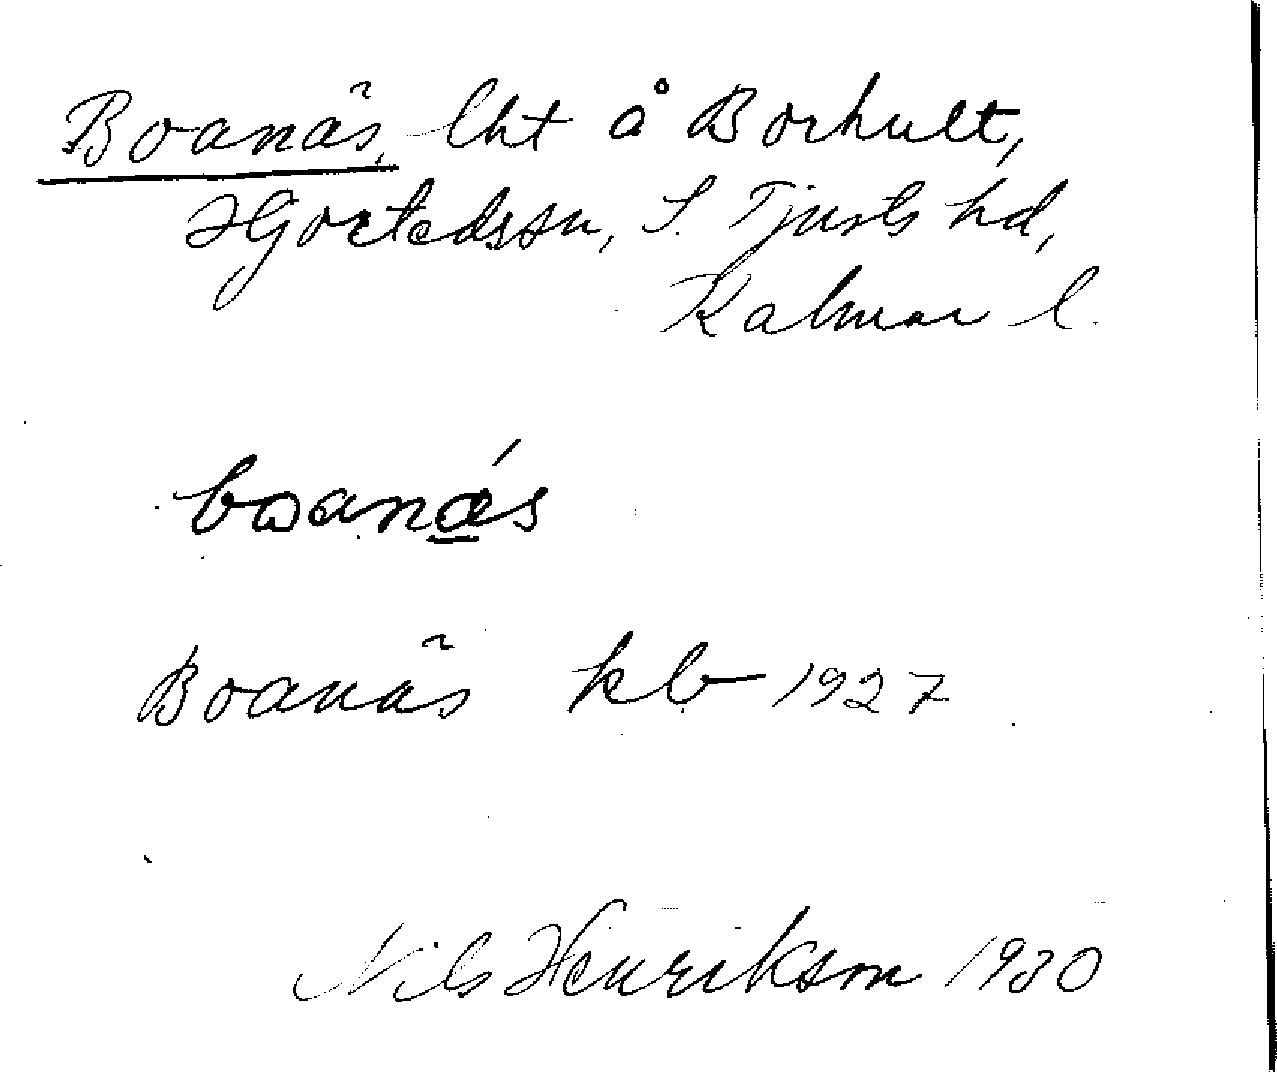 Boanäs, lht å Borhult,
Hjortedssn, S. Tjusts hd,
Kalmar l.
boanä́s
Boanäs kb 1927
Nils Henrikson 1930